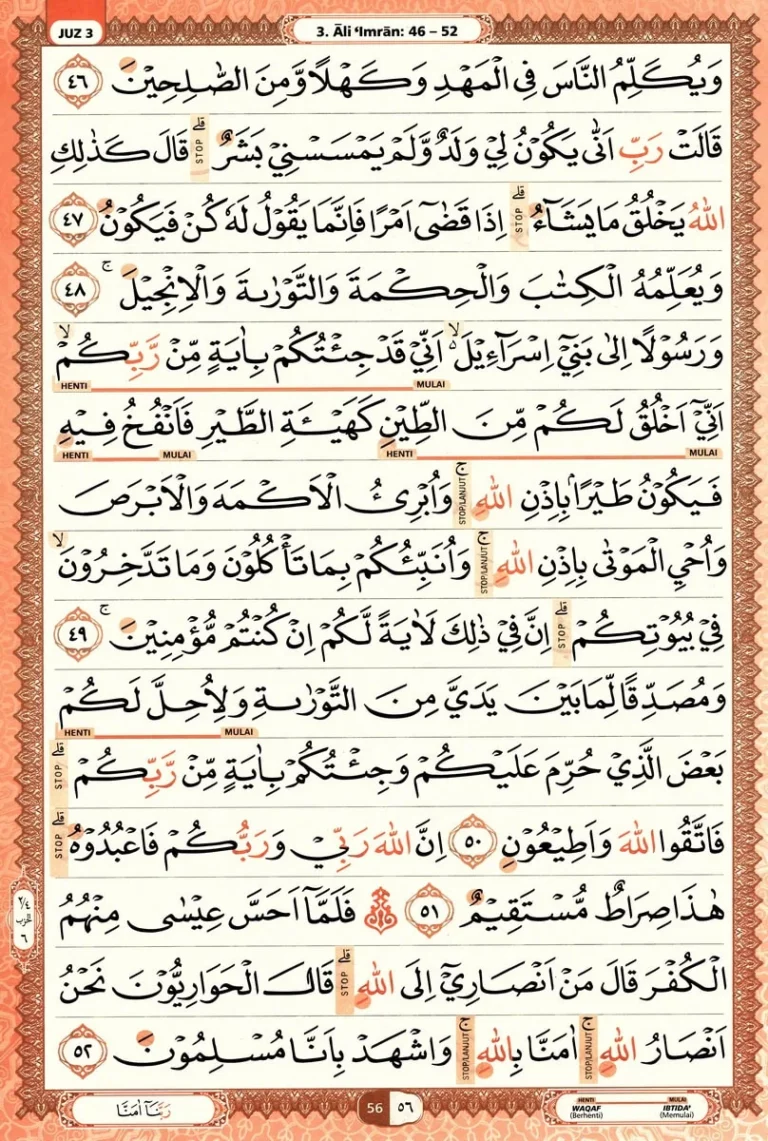 JUZ 3
3. Āli ‘Imrān: 46 – 52
وَيُكَلِّمُ النَّاسَ فِى الْمَهْدِ وَكَهْلًا وَّمِنَ الصّٰلِحِيْنَ ٤٦
قَالَتْ رَبِّ اَنّٰى يَكُوْنُ لِيْ وَلَدٌ وَّلَمْ يَمْسَسْنِيْ بَشَرٌ ۗ STOP قَالَ كَذٰلِكِ
اللّٰهُ يَخْلُقُ مَا يَشَاۤءُ ۗ STOP اِذَا قَضٰٓى اَمْرًا فَاِنَّمَا يَقُوْلُ لَهٗ كُنْ فَيَكُوْنُ ٤٧
وَيُعَلِّمُهُ الْكِتٰبَ وَالْحِكْمَةَ وَالتَّوْرٰىةَ وَالْاِنْجِيْلَ ۚ ٤٨
وَرَسُوْلًا اِلٰى بَنِيْٓ اِسْرَاۤءِيْلَ ەۙ اَنِّيْ قَدْ جِئْتُكُمْ بِاٰيَةٍ مِّنْ رَّبِّكُمْ ۙ
MULAI HENTI
اَنِّيْٓ اَخْلُقُ لَكُمْ مِّنَ الطِّيْنِ كَهَيْـَٔةِ الطَّيْرِ فَاَنْفُخُ فِيْهِ
MULAI HENTI MULAI HENTI
فَيَكُوْنُ طَيْرًاۢ بِاِذْنِ اللّٰهِ ۚ STOP/LANJUT وَاُبْرِئُ الْاَكْمَهَ وَالْاَبْرَصَ
وَاُحْيِ الْمَوْتٰى بِاِذْنِ اللّٰهِ ۚ STOP/LANJUT وَاُنَبِّئُكُمْ بِمَا تَأْكُلُوْنَ وَمَا تَدَّخِرُوْنَ ۙ
فِيْ بُيُوْتِكُمْ ۗ STOP اِنَّ فِيْ ذٰلِكَ لَاٰيَةً لَّكُمْ اِنْ كُنْتُمْ مُّؤْمِنِيْنَ ۚ ٤٩
وَمُصَدِّقًا لِّمَا بَيْنَ يَدَيَّ مِنَ التَّوْرٰىةِ وَلِاُحِلَّ لَكُمْ
MULAI HENTI
بَعْضَ الَّذِيْ حُرِّمَ عَلَيْكُمْ وَجِئْتُكُمْ بِاٰيَةٍ مِّنْ رَّبِّكُمْ ۗ STOP
فَاتَّقُوا اللّٰهَ وَاَطِيْعُوْنِ ٥٠ اِنَّ اللّٰهَ رَبِّيْ وَرَبُّكُمْ فَاعْبُدُوْهُ ۗ STOP
هٰذَا صِرَاطٌ مُّسْتَقِيْمٌ ٥١ فَلَمَّآ اَحَسَّ عِيْسٰى مِنْهُمُ
الْكُفْرَ قَالَ مَنْ اَنْصَارِيْٓ اِلَى اللّٰهِ ۗ STOP قَالَ الْحَوَارِيُّوْنَ نَحْنُ
اَنْصَارُ اللّٰهِ ۚ STOP/LANJUT اٰمَنَّا بِاللّٰهِ ۚ STOP/LANJUT وَاشْهَدْ بِاَنَّا مُسْلِمُوْنَ ٥٢
٢/٤
الحزب
٦
رَبَّنَآ اٰمَنَّا
56 ٥٦
HENTI MULAI
WAQAF IBTIDA'
(Berhenti) (Memulai)